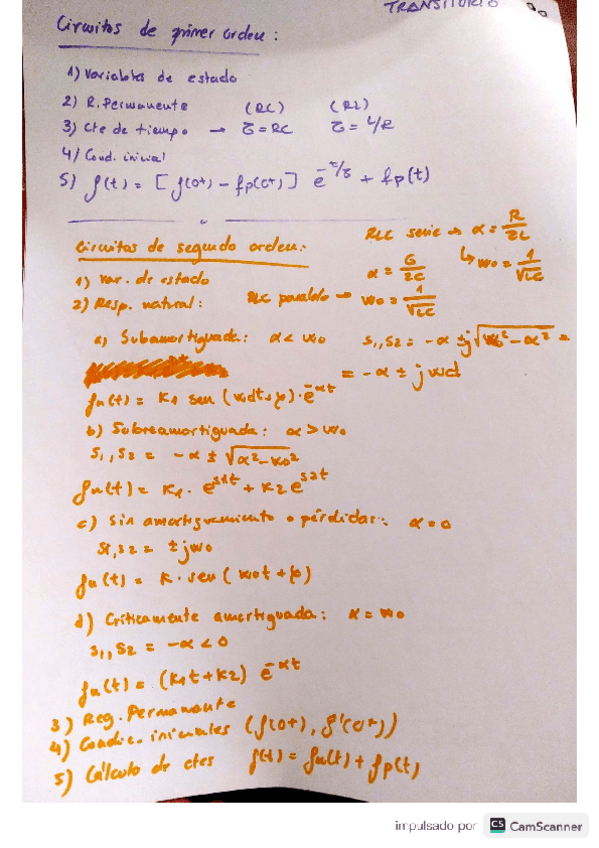 TRANSITORIO
Circuitos de primer orden:
1) Variables de estado
2) R. Permanente (RC) (RL)
3) Cte de tiempo → τ = RC τ = L/R
4) Cond. inicial
5) f(t) = [f(0+) - fp(0+)] e^-t/τ + fp(t)
Circuitos de segundo orden:
RLC serie → α = R/2L
↳ w0 = 1/√LC
1) Var. de estado
2) Resp. natural:
RLC paralelo → α = G/2C
w0 = 1/√LC
a) Subamortiguada: α < w0 s1,s2 = -α ± j√w0² - α² =
= -α ± j wd
fn(t) = K1 sen (wdt+φ) · e^-αt
b) Sobreamortiguada: α > w0
s1, s2 = -α ± √α² - w0²
fn(t) = K1 · e^s1t + K2 e^s2t
c) Sin amortiguamiento o pérdidas: α = 0
s1,s2 = ± jw0
fn(t) = K · sen (w0t + φ)
d) Críticamente amortiguada: α = w0
s1, s2 = -α < 0
fn(t) = (K1t + K2) e^-αt
3) Reg. Permanente
4) Condic. iniciales (f(0+), f'(0+))
5) Cálculo de ctes f(t) = fn(t) + fp(t)
impulsado por CS CamScanner